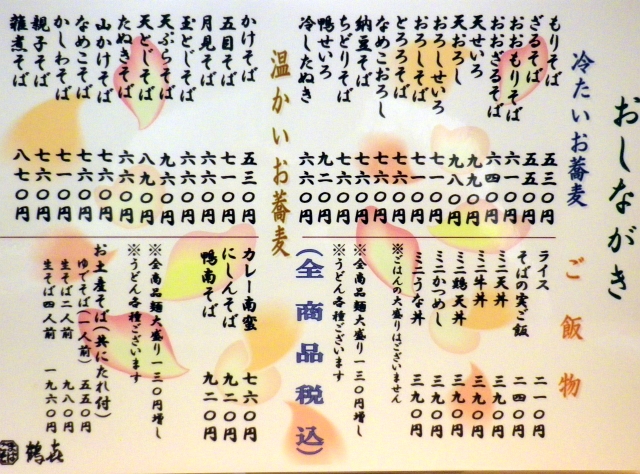 おしながき
冷たいお蕎麦
もりそば 五三〇円
ざるそば 五五〇円
おおもりそば 六一〇円
おおざるそば 六四〇円
天せいろ 九九〇円
天おろし 九八〇円
おろしせいろ 七一〇円
おろしそば 七一〇円
とろろそば 七六〇円
なめこおろし 七六〇円
納豆そば 七六〇円
ちどりそば 七六〇円
鴨せいろ 九二〇円
冷したぬき 六六〇円
温かいお蕎麦
かけそば 五三〇円
五目そば 七一〇円
月見そば 六六〇円
玉とじそば 六六〇円
天ぷらそば 九六〇円
天とじそば 八九〇円
たぬきそば 六六〇円
山かけそば 七六〇円
なめこそば 七六〇円
かしわそば 七一〇円
親子そば 七六〇円
雑煮そば 八七〇円
ご飯物
ライス 二一〇円
そばの実ご飯 二四〇円
ミニ天丼 三九〇円
ミニ牛丼 三九〇円
ミニ鶏天丼 三九〇円
ミニかつめし 三九〇円
ミニうな丼 三九〇円
※ごはんの大盛りはございません
※全商品麺大盛り一三〇円増し
※うどん各種ございます
(全商品税込)
カレー南蛮 七六〇円
にしんそば 九二〇円
鴨南そば 九二〇円
※全商品麺大盛り一三〇円増し
※うどん各種ございます
お土産そば(共にたれ付)
ゆでそば(一人前) 五五〇円
生そば二人前 九八〇円
生そば四人前 一九六〇円
鶴㐂